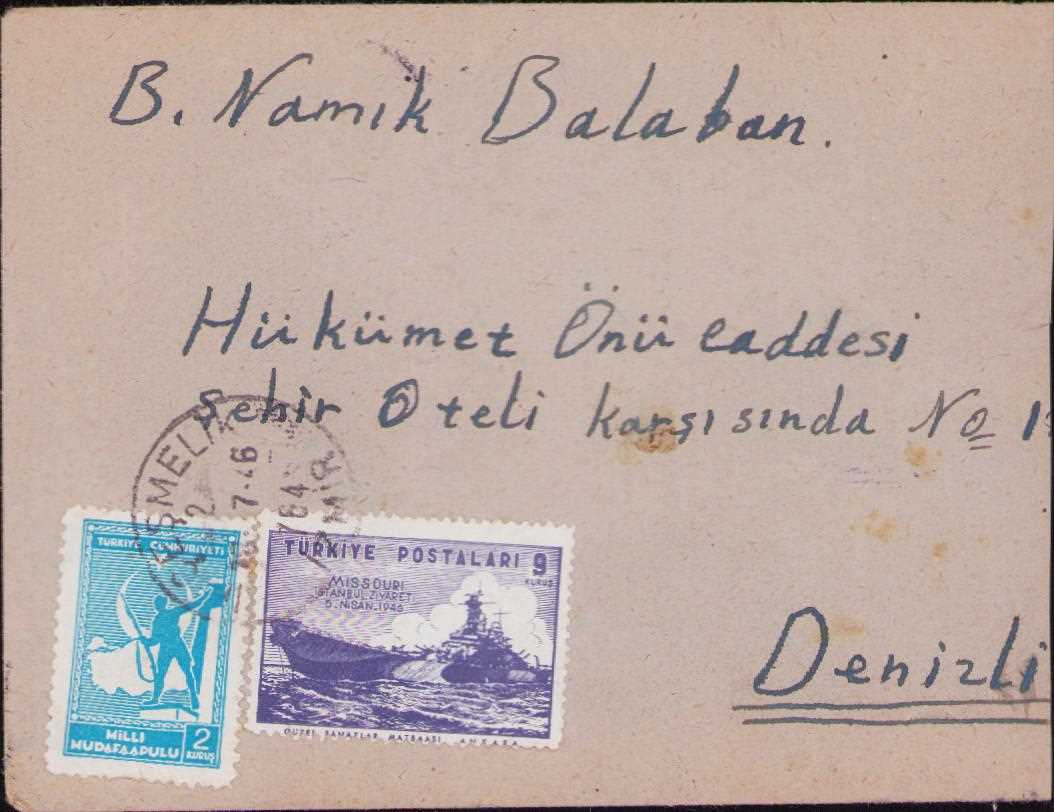 B. Namık Balaban.
Hükümet Önü caddesi
şehir Oteli karşısında No 1
Denizli
7·46
TÜRKİYE CUMHURİYETİ
MİLLİ
MÜDAFAA PULU
2
KURUŞ
TÜRKİYE POSTALARI 9
KURUŞ
MISSOURI
İSTANBUL ZİYARETİ
5. NİSAN. 1946
GÜZEL SANATLAR MATBAASI ANKARA